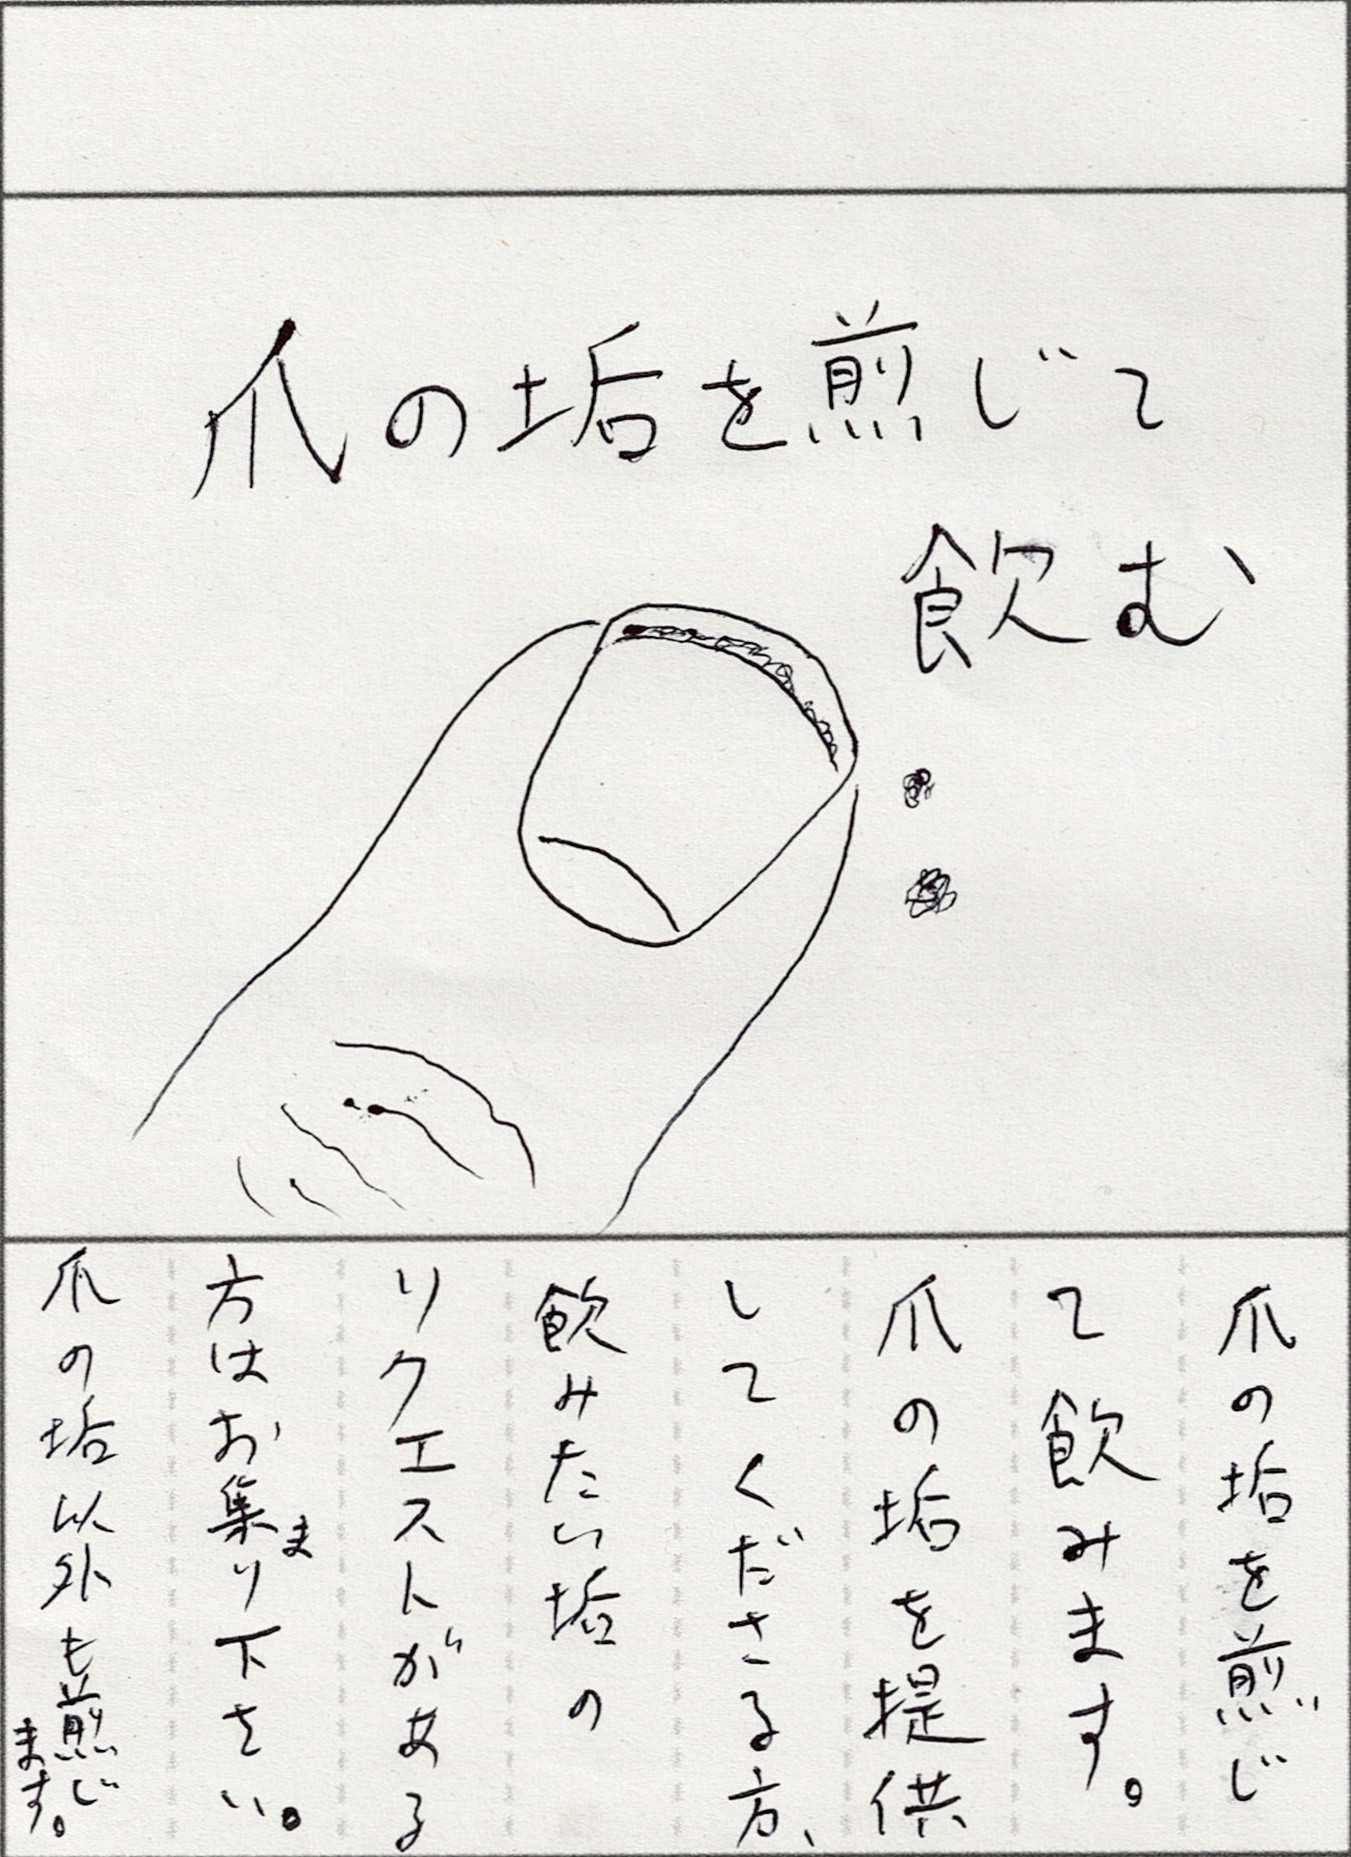 爪の垢を煎じて
飲む
爪の垢を煎じ
て飲みます。
爪の垢を提供
してくださる方、
飲みたい垢の
リクエストがある
方はお集まり下さい。
爪の垢以外も煎じます。